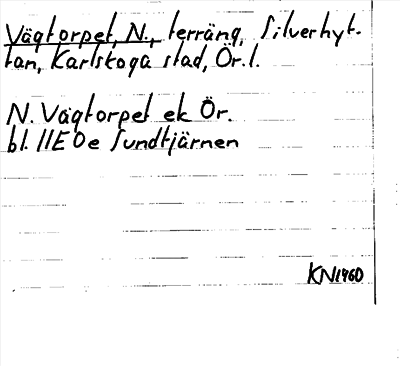 Vägtorpet, N., terräng, Silverhyt-
tan, Karlskoga stad, Ör. l.
N. Vägtorpet ek Ör.
bl. 11E 0e Sundtjärnen
KN1960